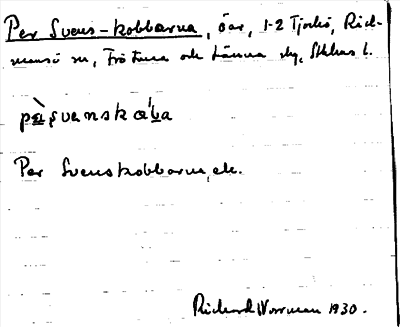 Per Svens-kobbarna, öar, 1-2 Tjockö, Räd-
mansö sn, Frötuna och Länna skg, Sthlms l.
Per Svenskobbarna, ek.
Richard Norrman 1930.